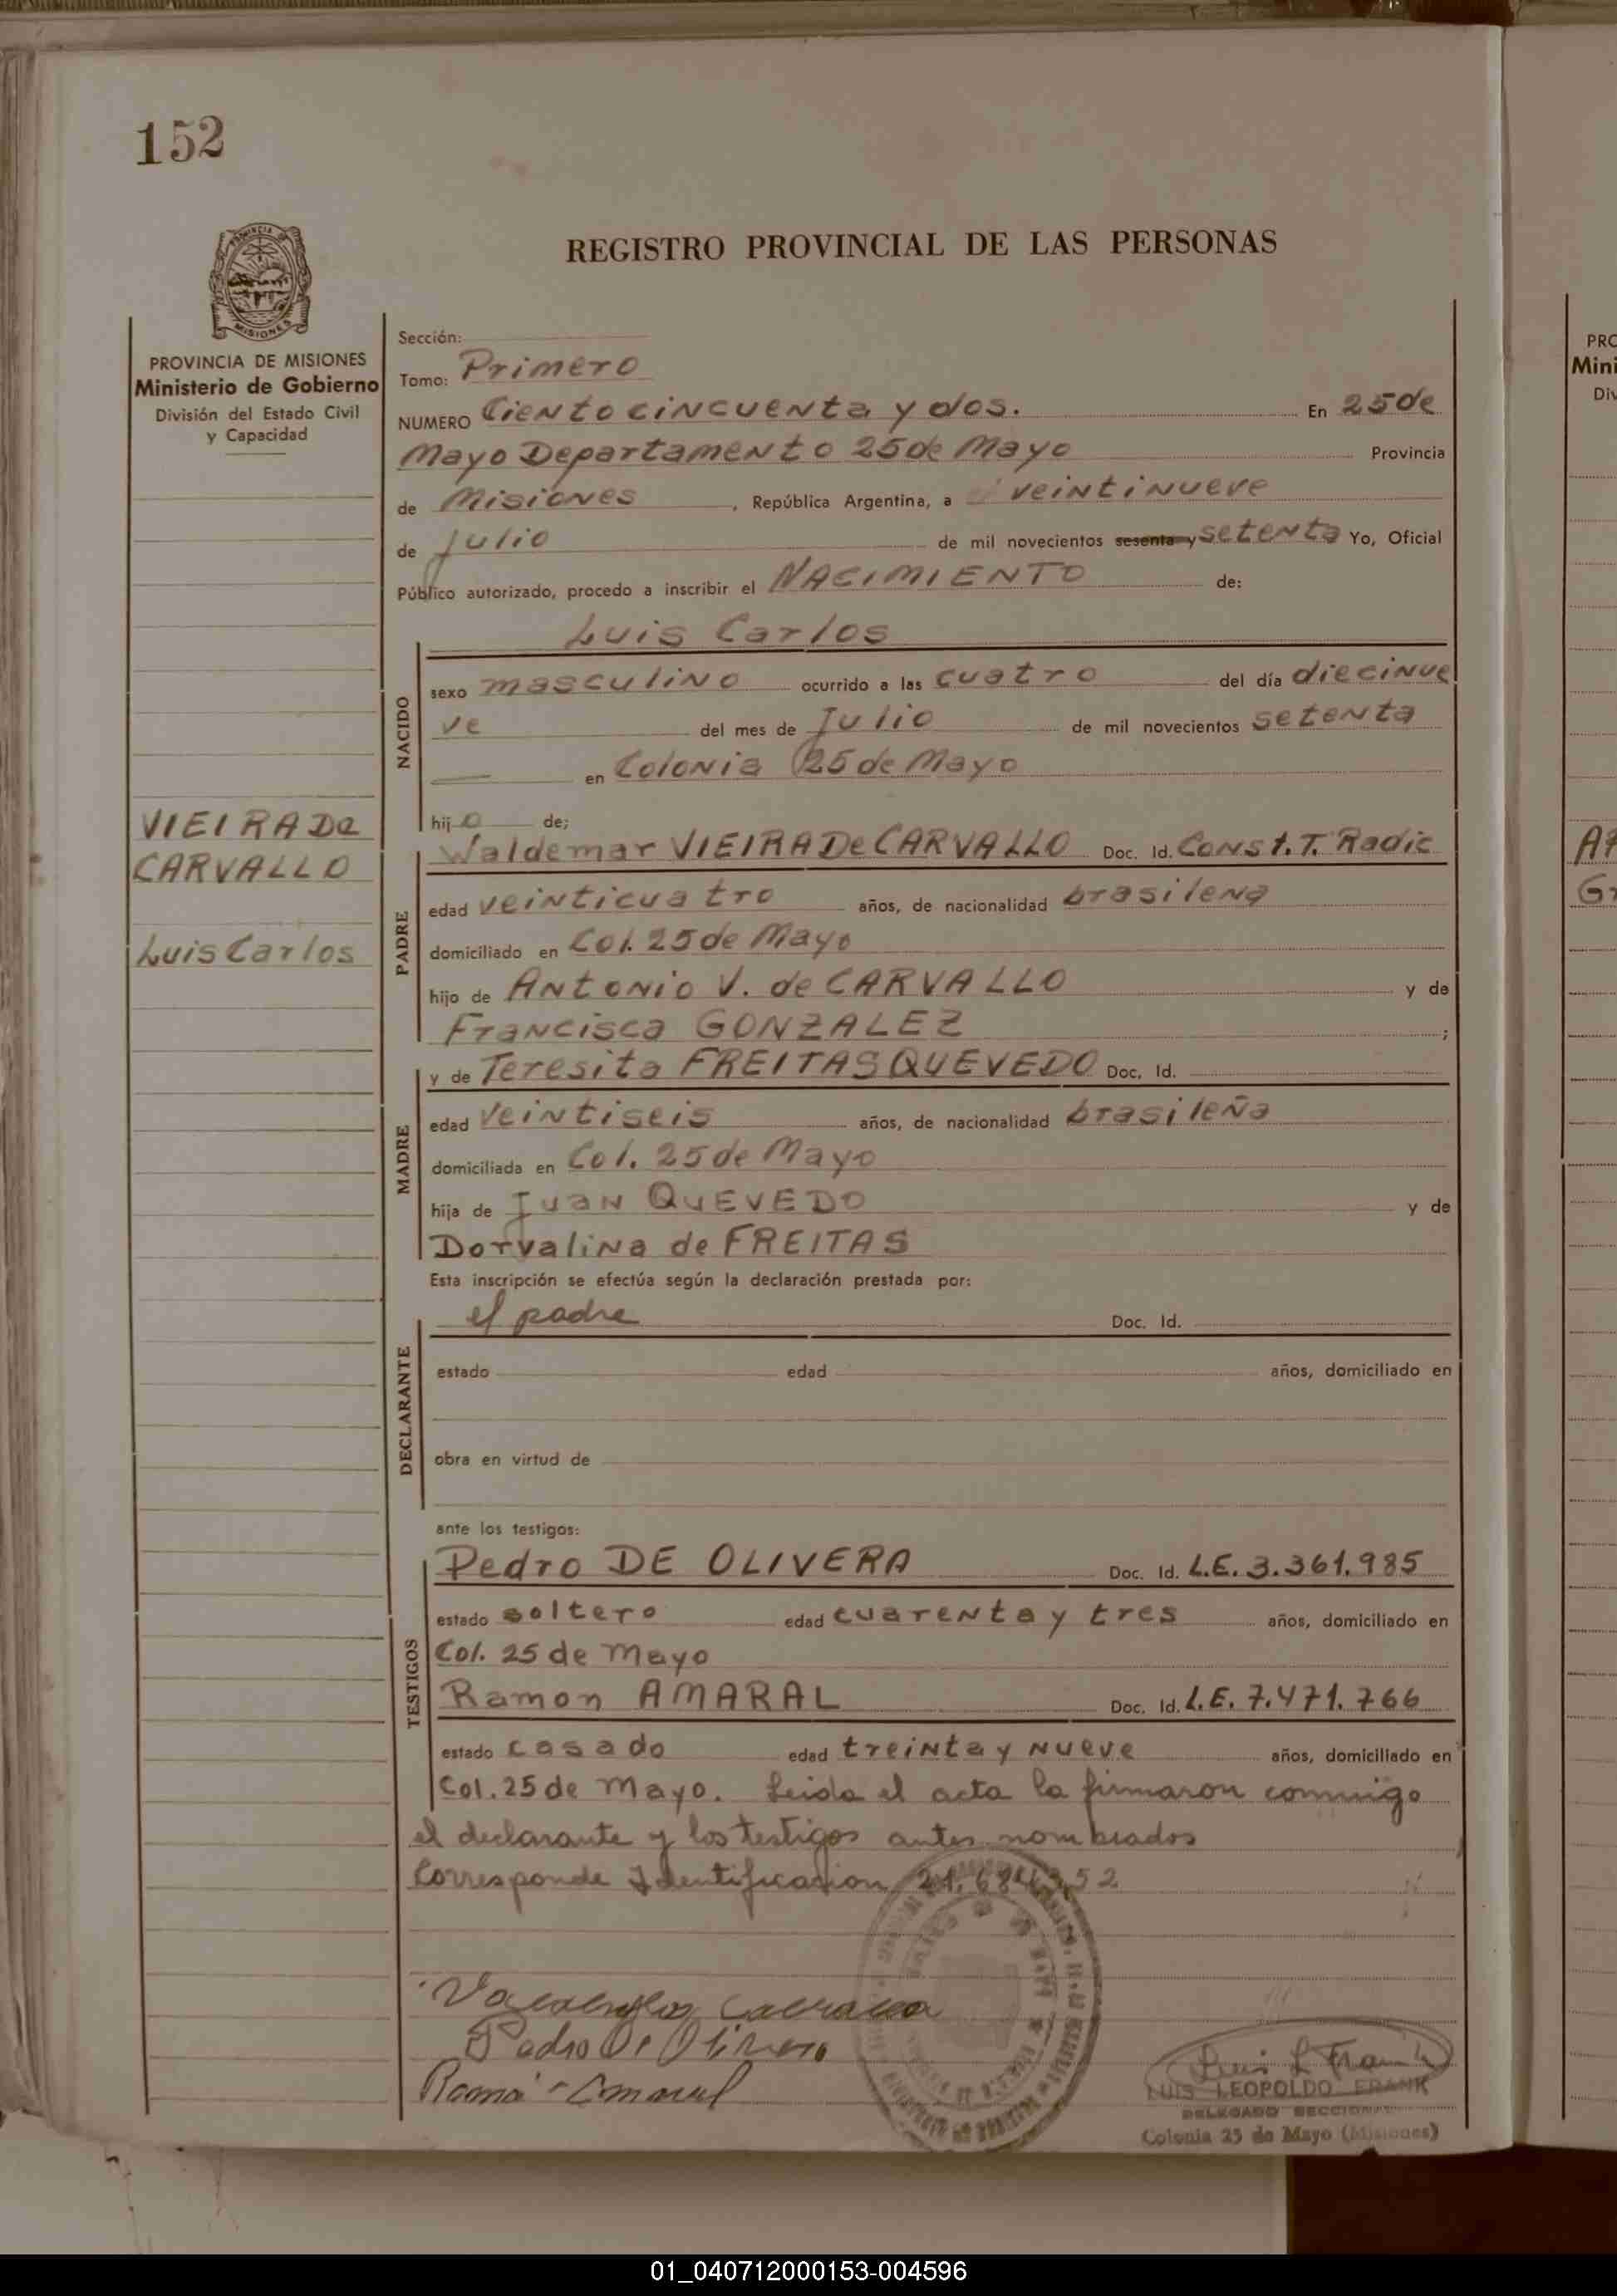 152
REGISTRO PROVINCIAL DE LAS PERSONAS
PROVINCIA DE MISIONES
Ministerio de Gobierno
División del Estado Civil
y Capacidad
VIEIRA De
CARVALLO
Luis Carlos
Sección:
Tomo: Primero
NUMERO Ciento cincuenta y dos. En 25 de
Mayo Departamento 25 de Mayo Provincia
de Misiones, República Argentina, a veintinueve
de Julio de mil novecientos sesenta y setenta Yo, Oficial
Público autorizado, procedo a inscribir el NACIMIENTO de:
Luis Carlos
NACIDO
sexo masculino ocurrido a las cuatro del día diecinue
ve del mes de Julio de mil novecientos setenta
en Colonia 25 de Mayo
hijo de;
PADRE
Waldemar VIEIRA De CARVALLO Doc. Id. Const. T. Radic
edad veinticuatro años, de nacionalidad brasilena
domiciliado en Col. 25 de Mayo
hijo de Antonio V. de CARVALLO y de
Francisca GONZALEZ ;
MADRE
y de Teresita FREITAS QUEVEDO Doc. Id.
edad veintiseis años, de nacionalidad brasileña
domiciliada en Col. 25 de Mayo
hija de Juan QUEVEDO y de
Dorvalina de FREITAS
Esta inscripción se efectúa según la declaración prestada por:
DECLARANTE
el padre Doc. Id.
estado edad años, domiciliado en
obra en virtud de
ante los testigos:
TESTIGOS
Pedro DE OLIVERA Doc. Id. L.E. 3.361.985
estado soltero edad cuarenta y tres años, domiciliado en
Col. 25 de Mayo
Ramon AMARAL Doc. Id. L.E. 7.471.766
estado casado edad treinta y nueve años, domiciliado en
Col. 25 de Mayo. Leida el acta la firmaron conmigo
el declarante y los testigos antes nombrados
Corresponde Identificacion
Pedro De Olivera
Luis L Frank
LUIS LEOPOLDO FRANK
DELEGADO SECCIONAL
Colonia 25 de Mayo (Misiones)
PRO
Mini
Div
01_040712000153-004596